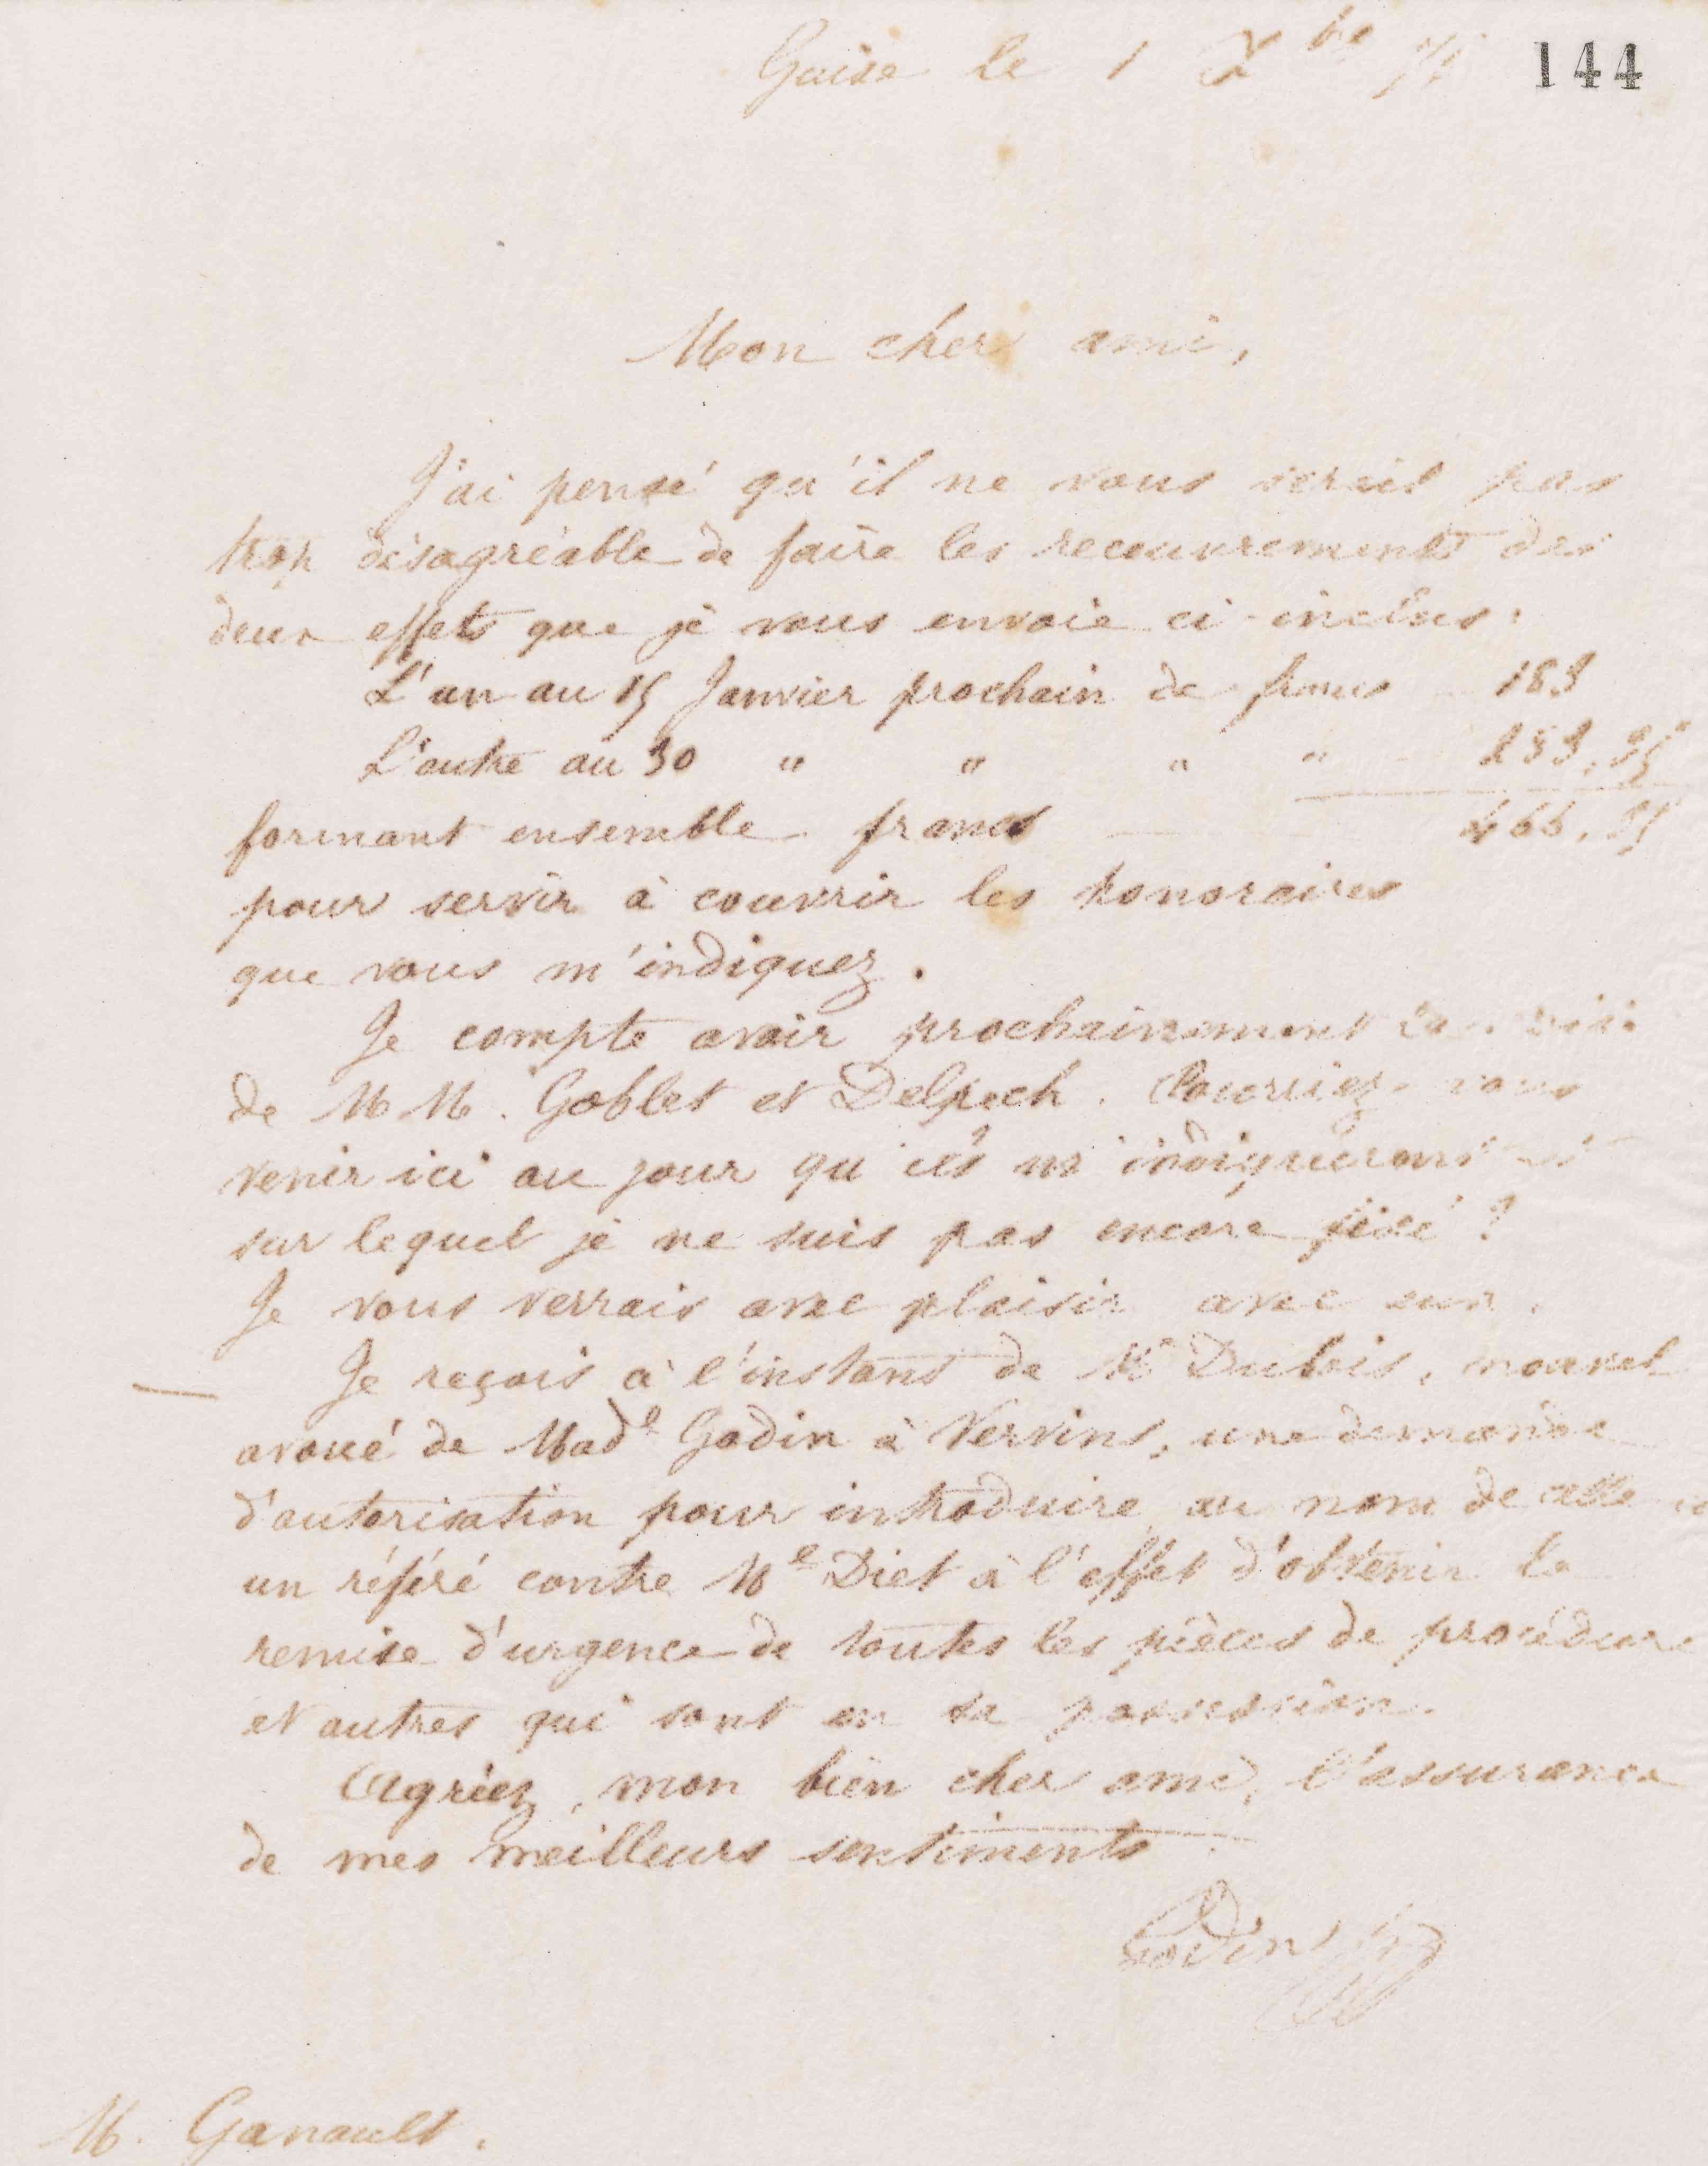 Guise le 1 Xbre 144
Mon cher ami,
J'ai pensé qu'il ne vous serait pas
trop désagréable de faire les recouvrements des
deux effets que je vous envoie ci-inclus:
L'un au 15 Janvier prochain de francs 183
L'autre au 30 " " " "
formant ensemble francs 466,
pour servir à couvrir les honoraires
que vous m'indiquez.
Je compte avoir prochainement la
de MM. Goblet et Delpech. Pourriez-vous
venir ici au jour qu'ils m'indiqueront et
sur lequel je ne suis pas encore fixé?
Je vous verrais avec plaisir avec eux.
Je reçois à l'instant de Me Dubois, nouvel
avoué de Made Godin à Vervins, une demande
d'autorisation pour introduire au nom de
un référé contre Me Diet à l'effet d'obtenir la
remise d'urgence de toutes les pièces de procédure
et autres qui sont en sa possession.
Agréez, mon bien cher ami, l'assurance
de mes meilleurs sentiments
Godin
M. Ganault.